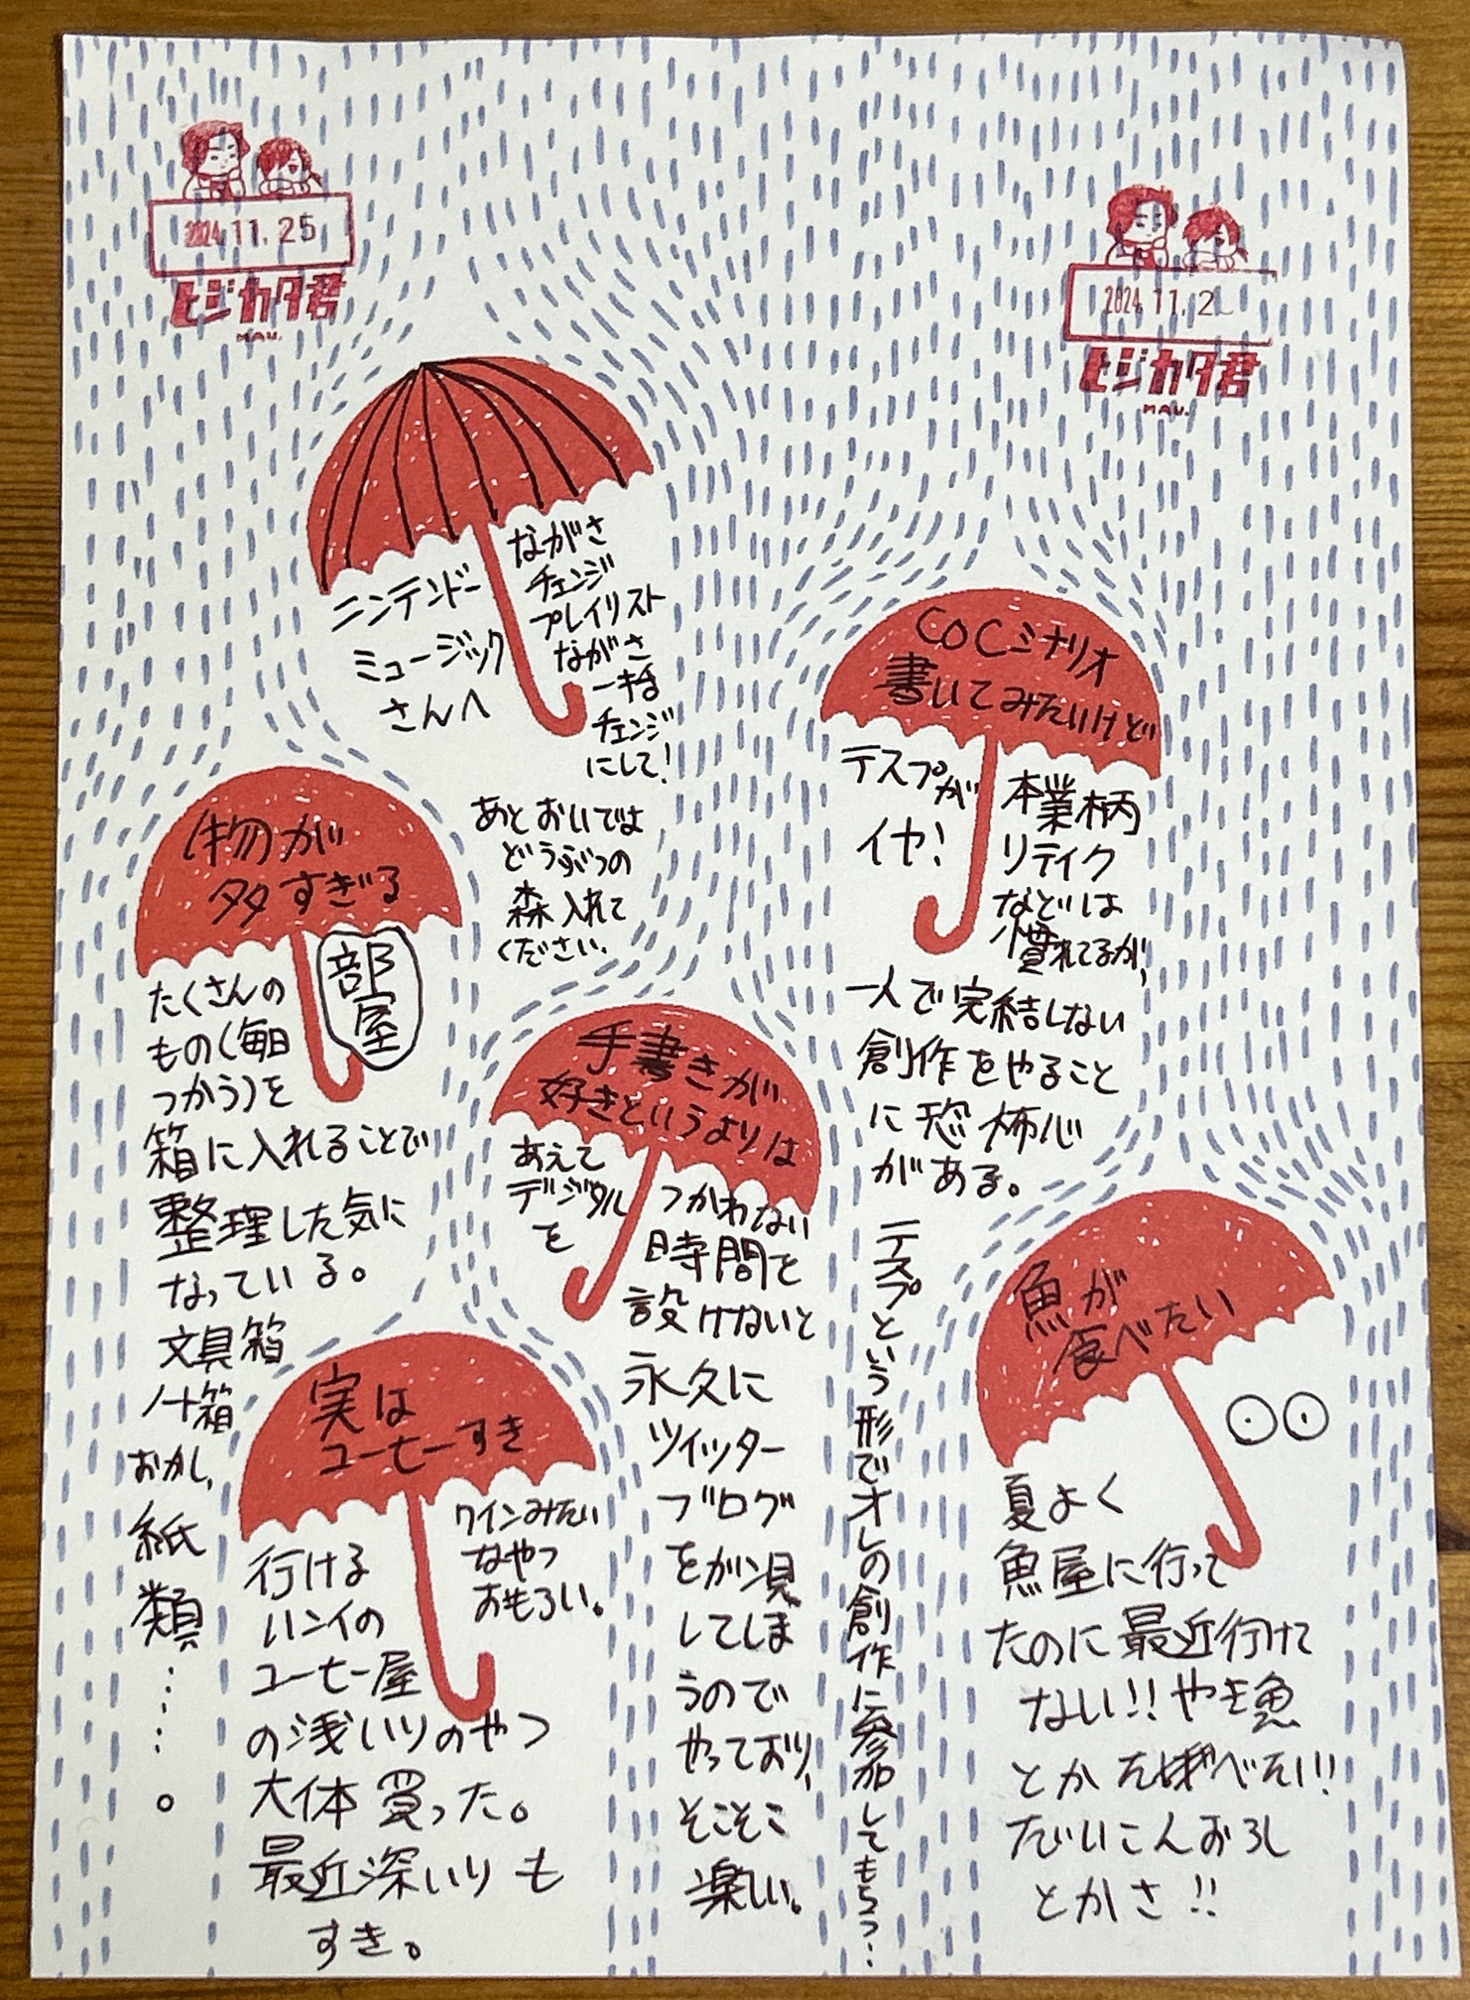 2024.11.25
ヒジカタ君
MAU.
2024.11.2
ヒジカタ君
MAU.
ニンテンドー
ミュージック
さんへ
ながさ
チェンジ
プレイリスト
ながさ
一括
チェンジ
にして!
あと おいでよ
どうぶつの
森 入れて
ください.
COCシナリオ
書いてみたいけど
テスプが
イヤ!
本業柄
リテイク
などは
慣れてるが、
一人で完結しない
創作をやること
に恐怖心
がある。
テスプという形でオレの創作に参加してもらう…
物が
多すぎる
部屋
たくさんの
もの(毎日
つかう)を
箱に入れることで
整理した気に
なっている。
文具箱
ノート箱
おかし,
紙
類……。
手書きが
好きというよりは
あえて
デジタル
を
つかわない
時間を
設けないと
永久に
ツイッター
ブログ
をが
してしま
うので
やっており、
そこそこ
楽しい。
実は
コーヒーすき
行ける
ハンイの
コーヒー屋
の浅いりのやつ
大体 買った。
最近深いり も
すき。
ワインみたい
なやつ
おもろい。
魚が
食べたい
夏よく
魚屋に行って
たのに最近行けて
ない!!やき魚
とか たべたい!!
だいこんおろし
とかさ!!